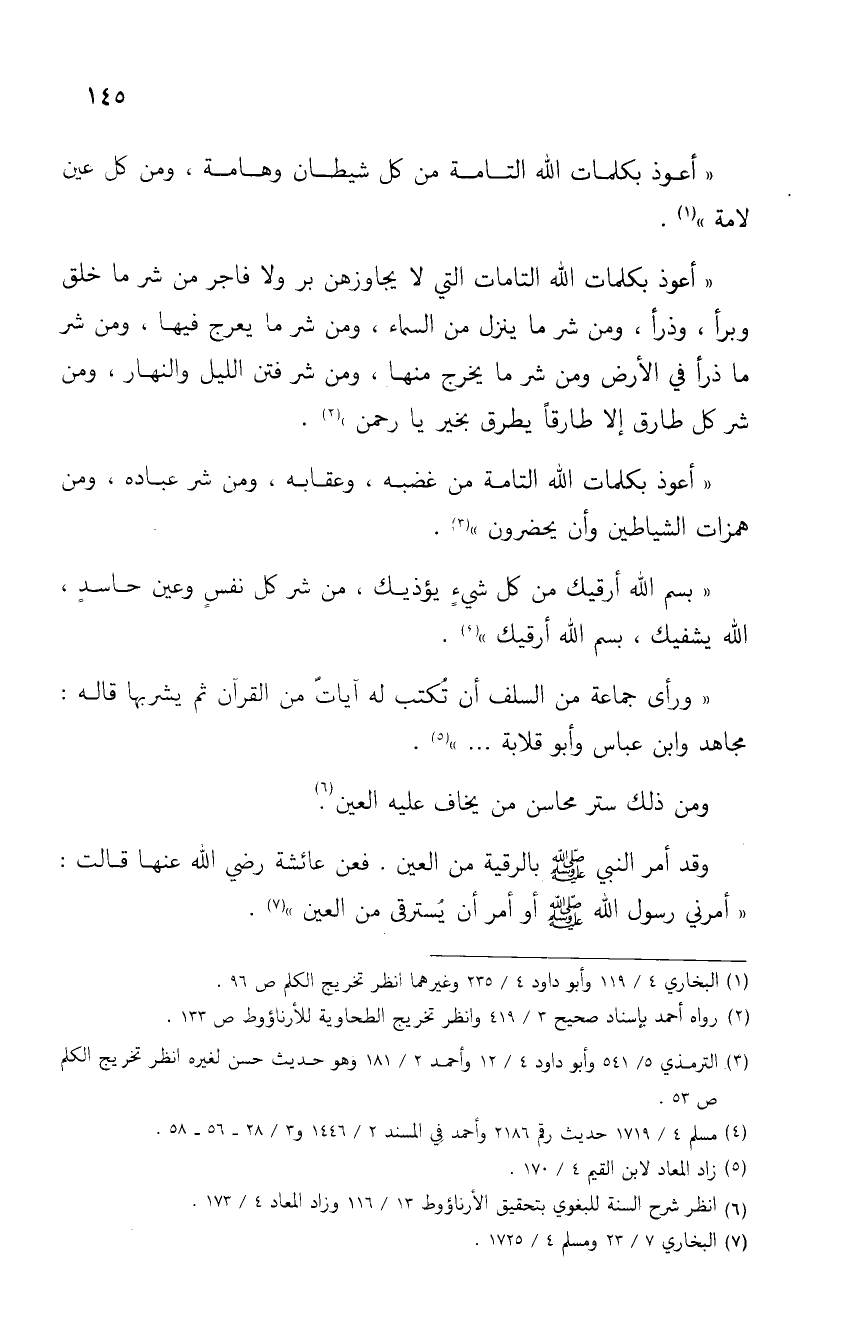 ١٤٥
« أعوذ بكلمات الله التامة من كل شيطان وهامة ، ومن كل عين
لامة »(١) .
« أعوذ بكلمات الله التامات التي لا يجاوزهن بر ولا فاجر من شر ما خلق
وبرأ ، وذرأ ، ومن شر ما ينزل من السماء ، ومن شر ما يعرج فيها ، ومن شر
ما ذرأ في الأرض ومن شر ما يخرج منها ، ومن شر فتن الليل والنهار ، ومن
شر كل طارق إلا طارقاً يطرق بخير يا رحمن »(٢) .
« أعوذ بكلمات الله التامة من غضبه ، وعقابه ، ومن شر عباده ، ومن
همزات الشياطين وأن يحضرون »(٣) .
« بسم الله أرقيك من كل شيءٍ يؤذيك ، من شر كل نفسٍ وعين حاسدٍ ،
الله يشفيك ، بسم الله أرقيك »(٤) .
« ورأى جماعة من السلف أن تُكتب له آياتٌ من القرآن ثم يشربها قاله :
مجاهد وابن عباس وأبو قلابة ... »(٥) .
ومن ذلك ستر محاسن من يخاف عليه العين(٦).
وقد أمر النبي ﷺ بالرقية من العين . فعن عائشة رضي الله عنها قالت :
« أمرني رسول الله ﷺ أو أمر أن يُسترقى من العين »(٧) .
(١) البخاري ٤ / ١١٩ وأبو داود ٤ / ٢٣٥ وغيرهما انظر تخريج الكلم ص ٩٦ .
(٢) رواه أحمد بإسناد صحيح ٣ / ٤١٩ وانظر تخريج الطحاوية للأرناؤوط ص ١٣٣ .
(٣) الترمذي ٥/ ٥٤١ وأبو داود ٤ / ١٢ وأحمد ٢ / ١٨١ وهو حديث حسن لغيره انظر تخريج الكلم
ص ٥٣ .
(٤) مسلم ٤ / ١٧١٩ حديث رقم ٢١٨٦ وأحمد في المسند ٢ / ١٤٤٦ و٣ / ٢٨ ـ ٥٦ ـ ٥٨ .
(٥) زاد المعاد لابن القيم ٤ / ١٧٠ .
(٦) انظر شرح السنة للبغوي بتحقيق الأرناؤوط ١٣ / ١١٦ وزاد المعاد ٤ / ١٧٣ .
(٧) البخاري ٧ / ٢٣ ومسلم ٤ / ١٧٢٥ .